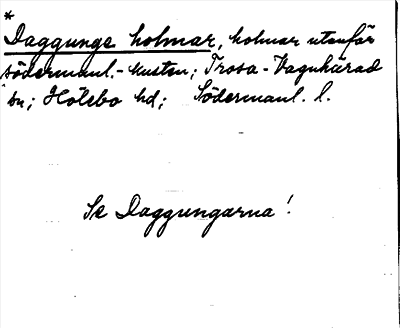 *
Daggunge holmar, holmar utanför
södermanl.-kusten; Trosa-Vagnhärad
sn; Hölebo hd; Södermanl. l.
Se Daggungarna!